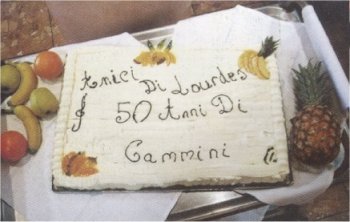 Amici
Di Lourdes
50 Anni Di
Cammini